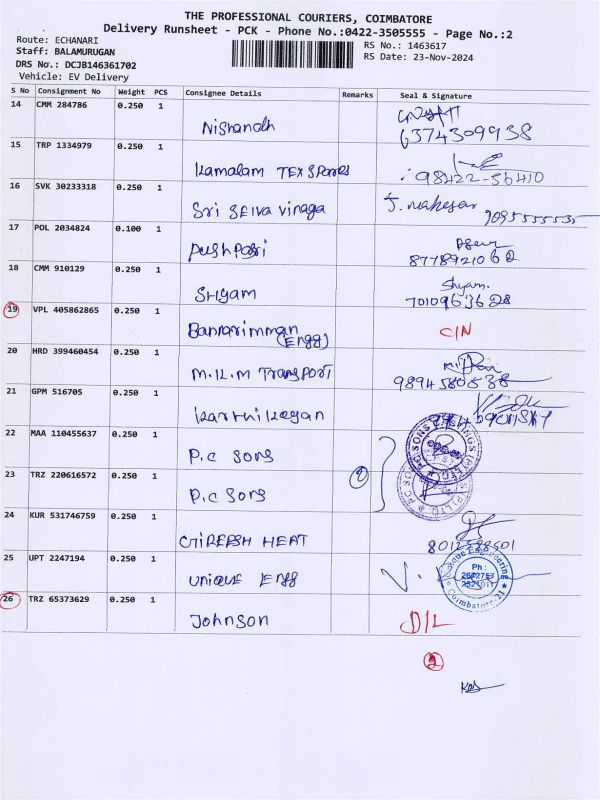 THE PROFESSIONAL COURIERS, COIMBATORE
Delivery Runsheet - PCK - Phone No.:0422-3505555 - Page No.:2
Route: ECHANARI
Staff: BALAMURUGAN
DRS No.: DCJB146361702
Vehicle: EV Delivery
RS No.: 1463617
RS Date: 23-Nov-2024
S No Consignment No Weight PCS Consignee Details Remarks Seal & Signature
14 CMM 284786 0.250 1 Nishandh
6374309938
15 TRP 1334979 0.250 1 Kamalam Tex Spares
98422-56410
16 SVK 30233318 0.250 1 Sri Selva vinaga J. mahesar
17 POL 2034824 0.100 1 Pushpasri
8778921062
18 CMM 910129 0.250 1 SHyam Shyam.
7010963628
19 VPL 405862865 0.250 1 Bannarimman (Engg) C/N
20 HRD 399460454 0.250 1 M.K.M Transport
9894580538
21 GPM 516705 0.250 1 Karthikeyan
22 MAA 110455637 0.250 1 P.C Sons
23 TRZ 220616572 0.250 1 P.C Sons
2
24 KUR 531746759 0.250 1 GIREESH HEAT
25 UPT 2247194 0.250 1 UNIQUE Engg
Unique Engineering
Ph :
Coimbatore-21
26 TRZ 65373629 0.250 1 Johnson D/L
2